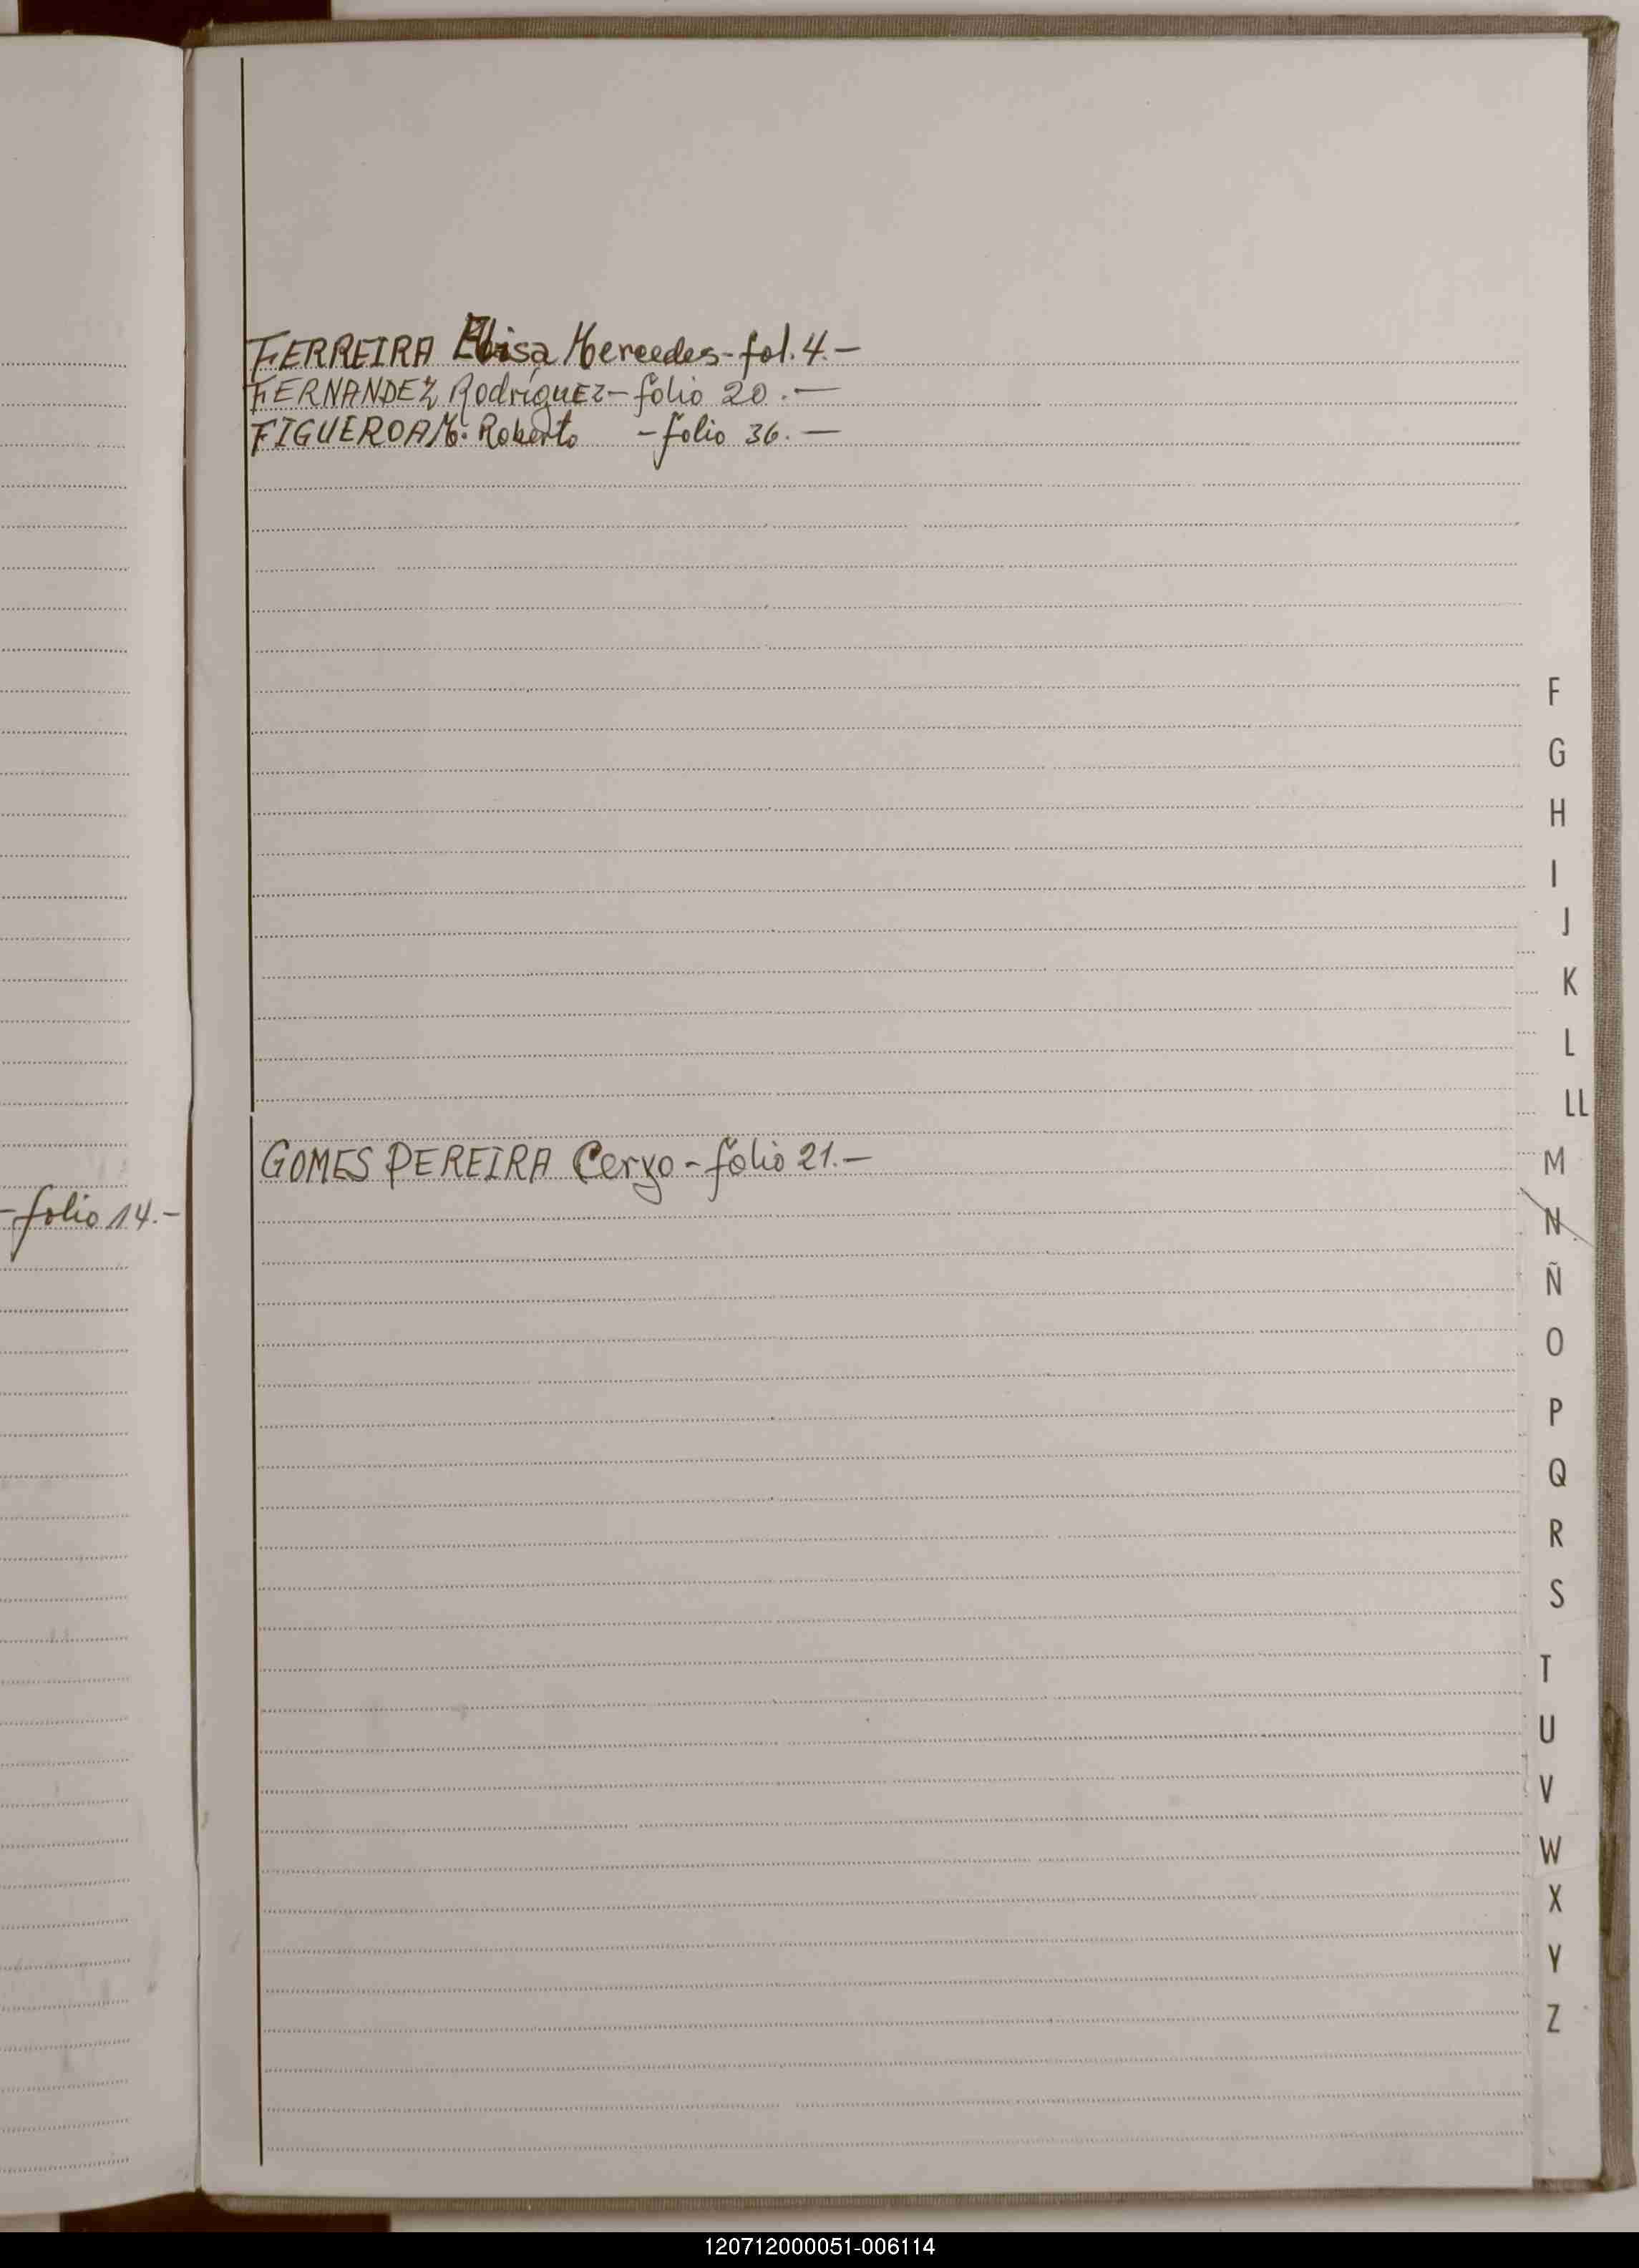 FERREIRA Elisa Mercedes - fol. 4.-
FERNANDEZ Rodríguez - folio 20.-
FIGUEROA M. Roberto - folio 36.-
GOMES PEREIRA - folio 21.-
- folio 14.-
F
G
H
I
J
K
L
LL
M
N
Ñ
O
P
Q
R
S
T
U
V
W
X
Y
Z
120712000051-006114